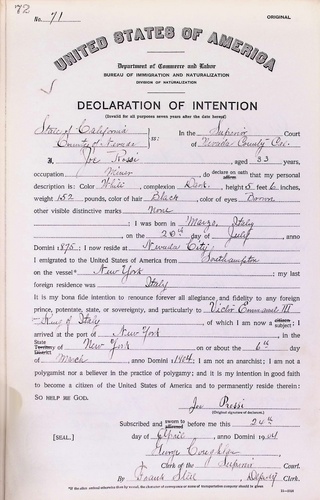 72
No. 71
ORIGINAL
UNITED STATES OF AMERICA
Department of Commerce and Labor
BUREAU OF IMMIGRATION AND NATURALIZATION
DIVISION OF NATURALIZATION
DECLARATION OF INTENTION
(Invalid for all purposes seven years after the date hereof)
State of California
County of Nevada ss: In the Superior Court of Nevada County Cal.
I, Joe Rossi, aged 33 years,
occupation Miner, do declare on oath affirm that my personal
description is: Color White, complexion Dark, height 5 feet 6 inches,
weight 152 pounds, color of hair Black, color of eyes Brown
other visible distinctive marks None
I was born in Italy
on the 20th day of July, anno
Domini 1875; I now reside at Nevada City
I emigrated to the United States of America from Southampton
on the vessel* New York; my last
foreign residence was Italy
It is my bona fide intention to renounce forever all allegiance and fidelity to any foreign
prince, potentate, state, or sovereignty, and particularly to Victor Emmanuel III
King of Italy, of which I am now a citizen subject; I
arrived at the port of New York, in the
State Territory District of New York on or about the 6th day
of March, anno Domini 1904; I am not an anarchist; I am not a
polygamist nor a believer in the practice of polygamy; and it is my intention in good faith
to become a citizen of the United States of America and to permanently reside therein:
SO HELP ME GOD.
Joe
(Original signature of declarant.)
Subscribed and sworn to affirmed before me this 24th
[SEAL.] day of April, anno Domini 19
George
Clerk of the Superior Court.
By Frank Deputy Clerk.
*If the alien arrived otherwise than by vessel, the character of conveyance or name of transportation company should be given.